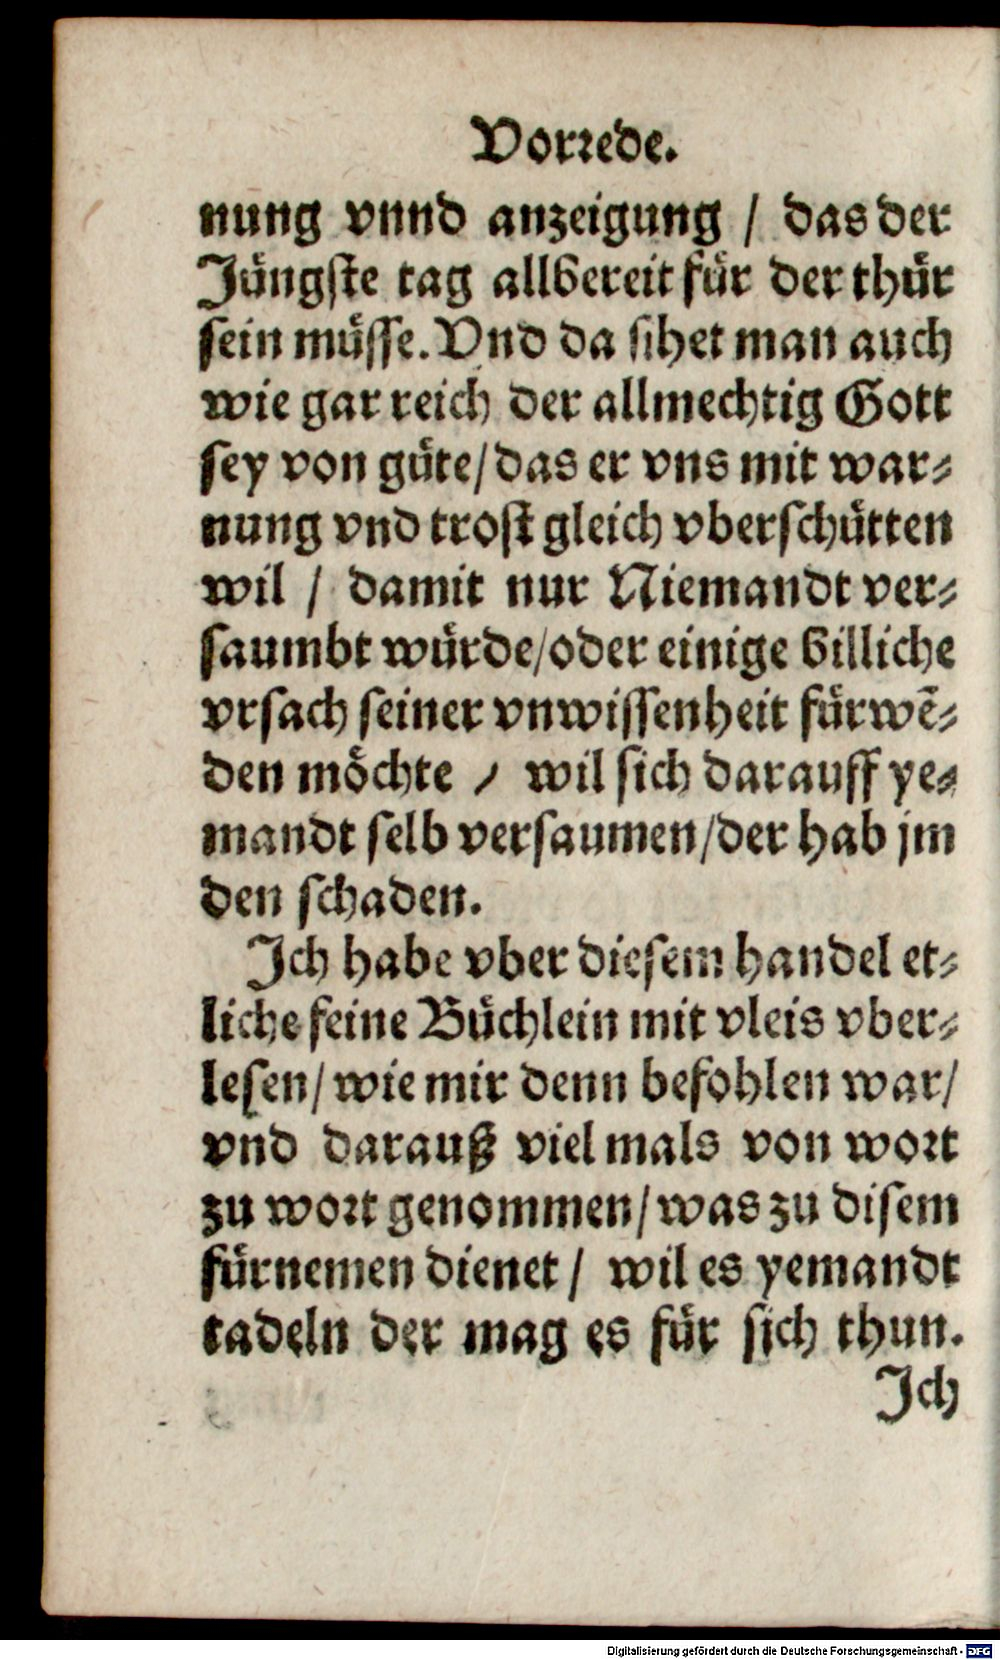 Vorrede.
nung vnnd anzeigung / das der
Jüngste tag allbereit für der thür
sein müsse. Vnd da sihet man auch
wie gar reich der allmechtig Gott
sey von güte/das er vns mit war⸗
nung vnd trost gleich vberschütten
wil / damit nur Niemandt ver⸗
saumbt würde/oder einige billiche
vrsach seiner vnwissenheit fürwē⸗
den möchte / wil sich darauff ye⸗
mandt selb versaumen/der hab jm
den schaden.
Ich habe vber diesem handel et⸗
liche feine Büchlein mit vleis vber⸗
lesen/wie mir denn befohlen war/
vnd darauß viel mals von wort
zu wort genommen/was zu disem
fürnemen dienet / wil es yemandt
tadeln der mag es für sich thun.
Ich
Digitalisierung gefördert durch die Deutsche Forschungsgemeinschaft - DFG